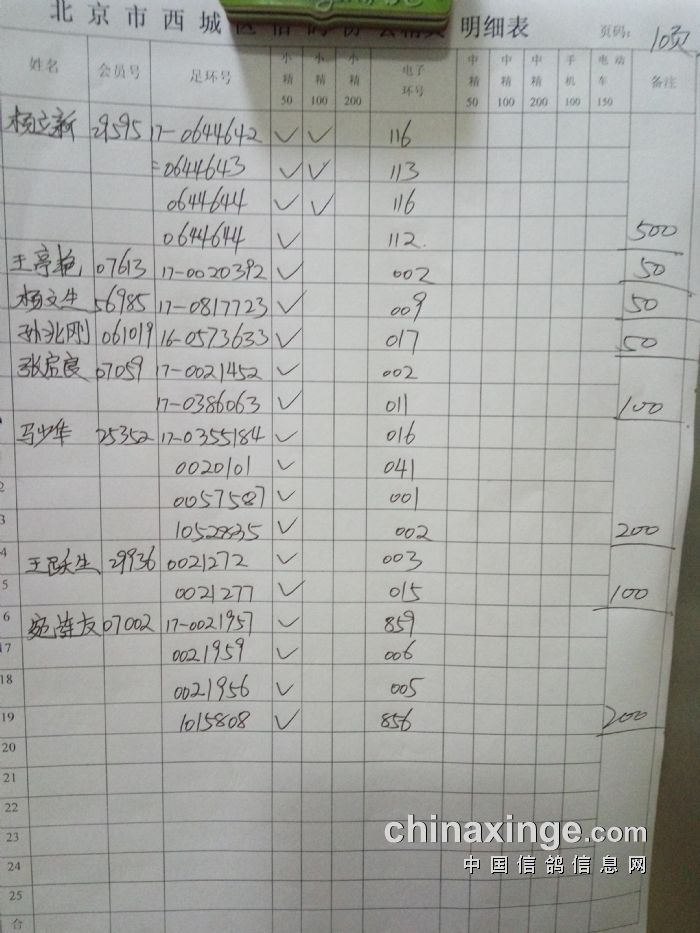 北京市西城区信鸽协会精英 明细表 页码: 10页
姓名 会员号 足环号 小精50 小精100 小精200 电子环号 中精50 中精100 中精200 手机100 电动车150 备注
杨立新 29595 17-0644642 ✓ ✓ 116
0644643 ✓ ✓ 113
0644644 ✓ ✓ 116
0644644 ✓ 112 500
王亭艳 07613 17-0020392 ✓ 002 50
杨文生 56985 17-0817723 ✓ 009 50
孙兆刚 061019 16-0573633 ✓ 017 50
张启良 07059 17-0021452 ✓ 002
17-0386063 ✓ 011 100
马少华 25352 17-0355184 ✓ 016
0020101 ✓ 041
2 0057587 ✓ 001
3 10528835 ✓ 002 200
4 王跃生 29936 0021272 ✓ 003
5 0021277 ✓ 015 100
6 07002 17-0021957 ✓ 859
17 0021959 ✓ 006
18 0021956 ✓ 005
19 1015808 ✓ 856 200
20
21
22
23
24
25
合
chinaxinge.com
中国信鸽信息网